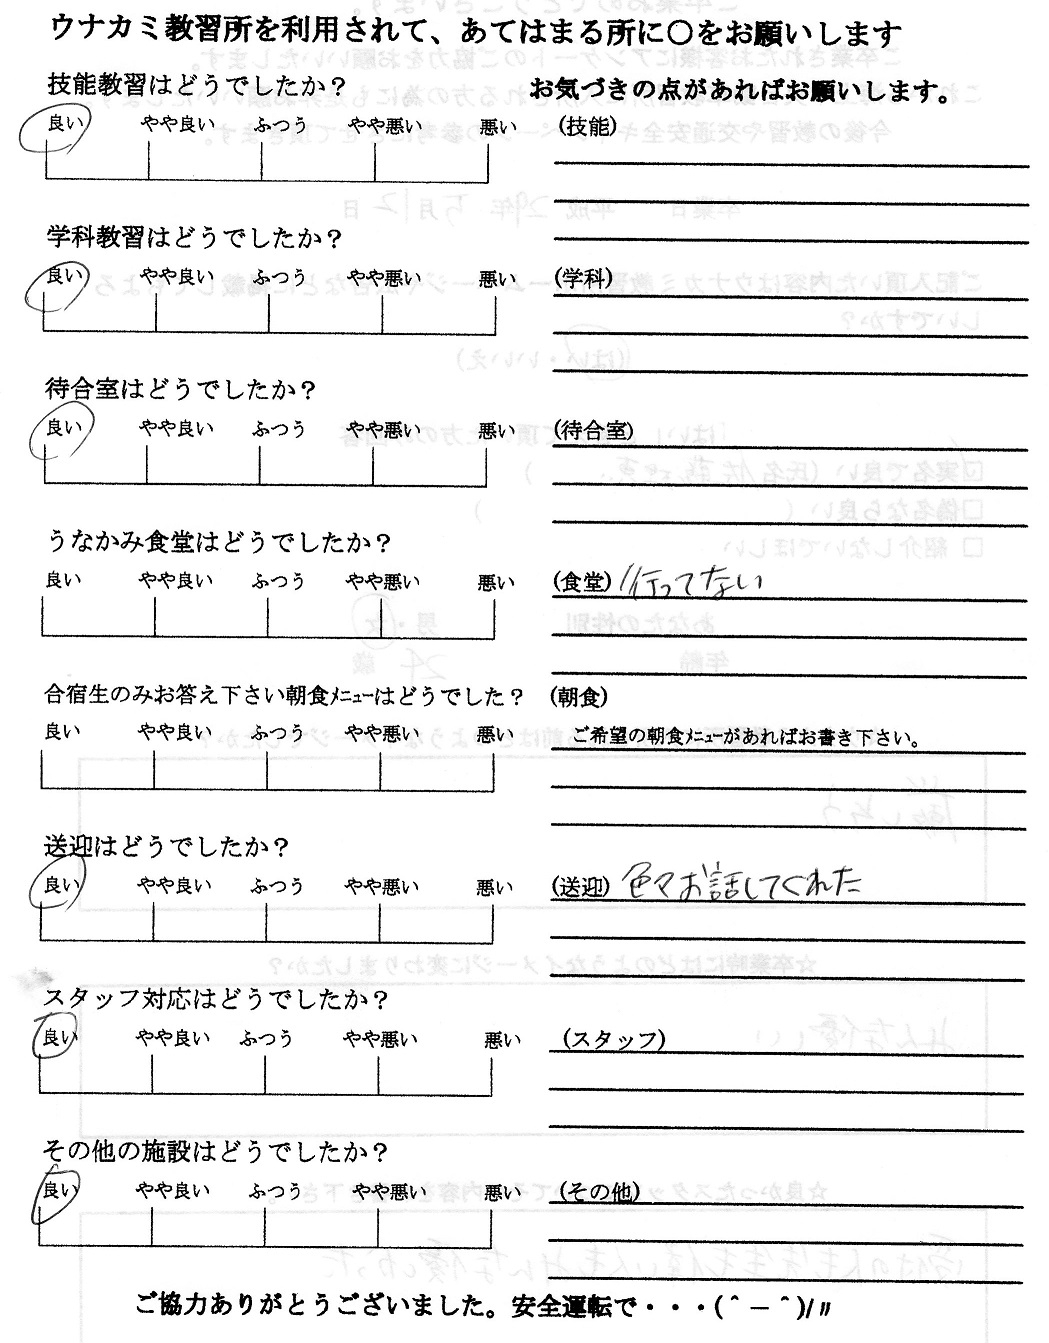 ウナカミ教習所を利用されて、あてはまる所に○をお願いします
技能教習はどうでしたか？
お気づきの点があればお願いします。
良い やや良い ふつう やや悪い 悪い (技能)
学科教習はどうでしたか？
良い やや良い ふつう やや悪い 悪い (学科)
待合室はどうでしたか？
良い やや良い ふつう やや悪い 悪い (待合室)
うなかみ食堂はどうでしたか？
良い やや良い ふつう やや悪い 悪い (食堂) 行ってない
合宿生のみお答え下さい朝食ﾒﾆｭｰはどうでした？ (朝食)
良い やや良い ふつう やや悪い 悪い ご希望の朝食ﾒﾆｭｰがあればお書き下さい。
送迎はどうでしたか？
良い やや良い ふつう やや悪い 悪い (送迎) 色々お話してくれた
スタッフ対応はどうでしたか？
良い やや良い ふつう やや悪い 悪い (スタッフ)
その他の施設はどうでしたか？
良い やや良い ふつう やや悪い 悪い (その他)
ご協力ありがとうございました。安全運転で・・・(＾－＾)/〃